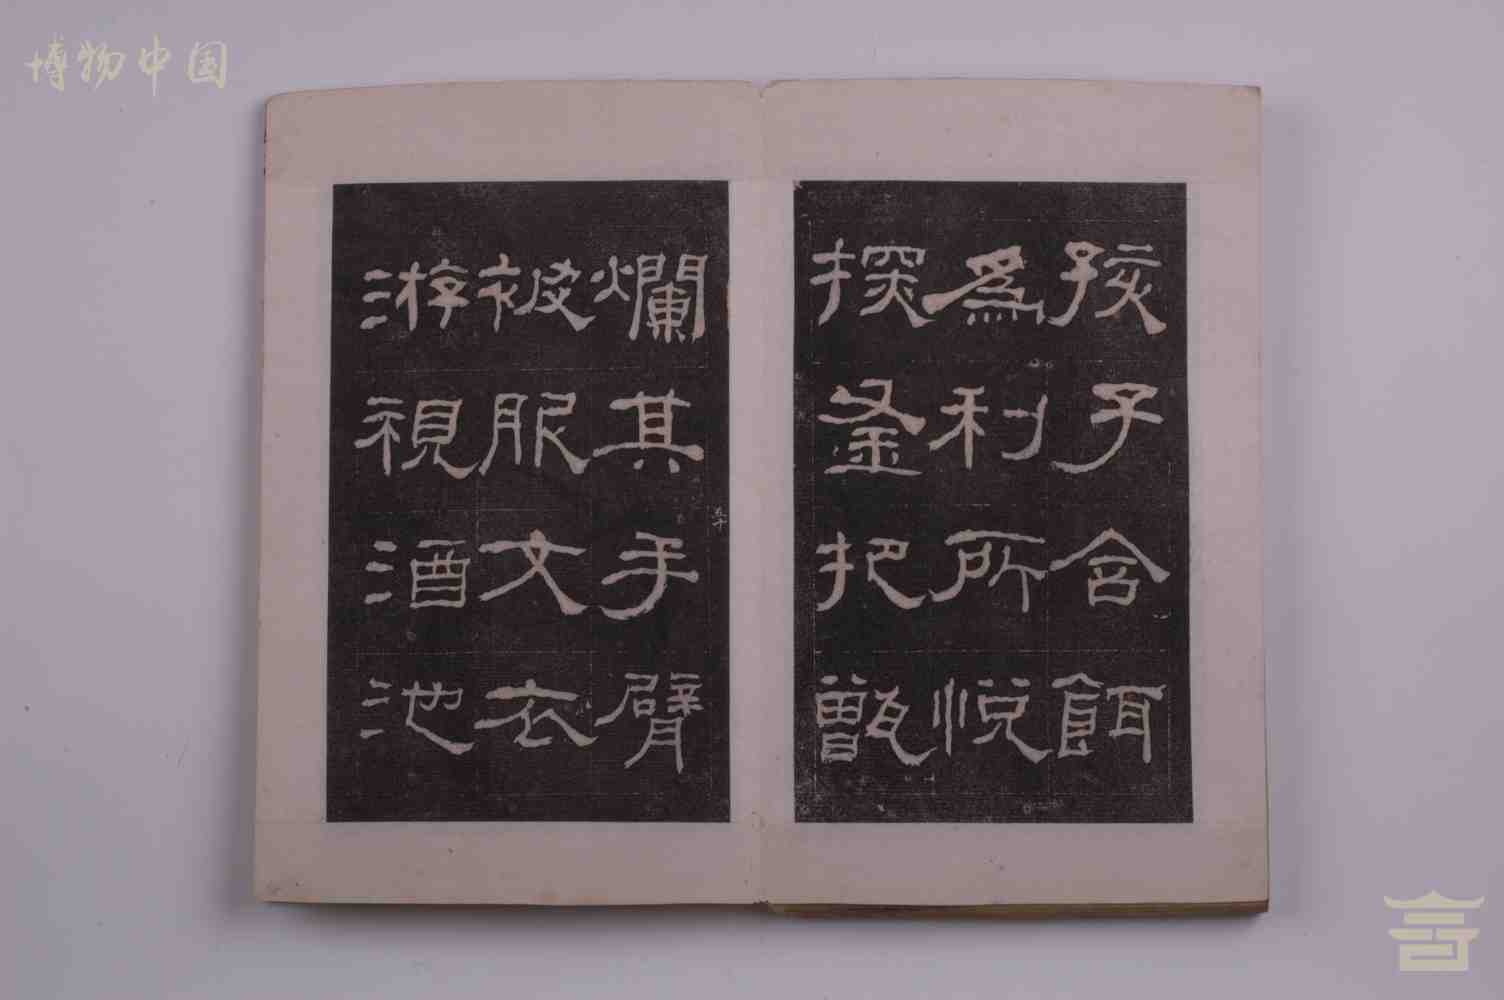 博物中国
孩子含餌
為利所悅
探釜把甑
爛其手臂
被服文衣
游視酒池
五十